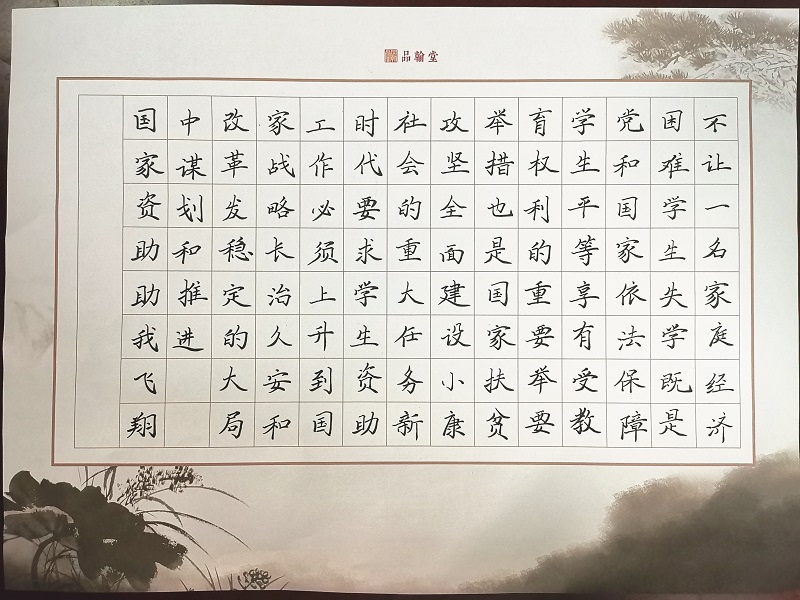 品翰堂
不让一名家庭经济
困难学生失学既是
党和国家依法保障
学生平等享有受教
育权利的重要举要
举措也是国家扶贫
攻坚全面建设小康
社会的重大任务新
时代要求学生资助
工作必须上升到国
家战略长治久安和
改革发稳定的大局
中谋划和推进
国家资助助我飞翔